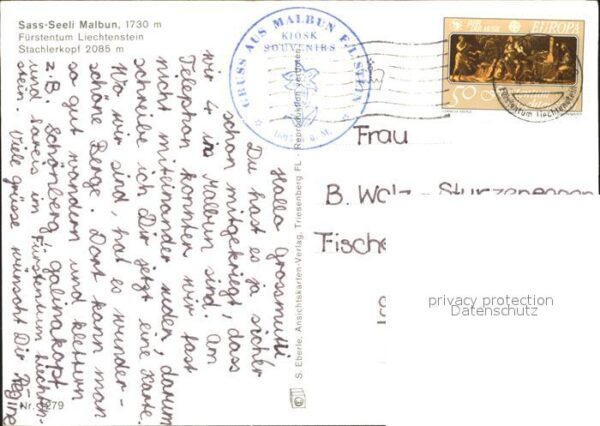 Sass-Seeli Malbun, 1730 m
Fürstentum Liechtenstein
Stachlerkopf 2085 m
Hallo Grossmutti
Du hast es ja sicher
schon mitgekriegt, dass
wir 4 in Malbun sind. Am
Telephon konnten wir fast
nicht mitteinander reden, darum
schreibe ich Dir jetzt eine Karte.
Wo wir sind, hat es wunder-
schöne Berge. Dort kann man
so gut wandern und klettern
z.B. Schönberg, Galinakopf
und sowas im Fürstentum Liechten-
stein. Viele grüsse wünscht Dir Regine
Nr. 1279
S. Eberle, Ansichtskarten-Verlag, Triesenberg FL - Reproduktion verboten
GRUSS AUS MALBUN F. L'STEIN
KIOSK
SOUVENIRS
EUROPA
50
Fürstentum Liechtenstein
Frau
B. Walz - Sturzenegger
Fische
privacy protection
Datenschutz